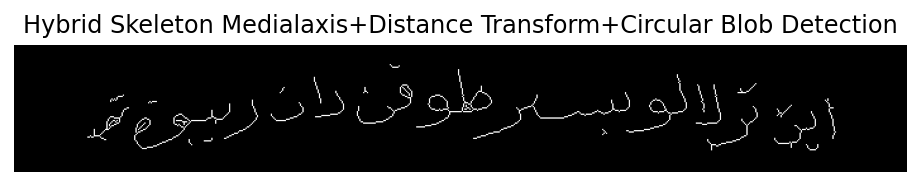 Hybrid Skeleton Medialaxis+Distance Transform+Circular Blob Detection
ترلالو بسر طوفن دان ريبوة